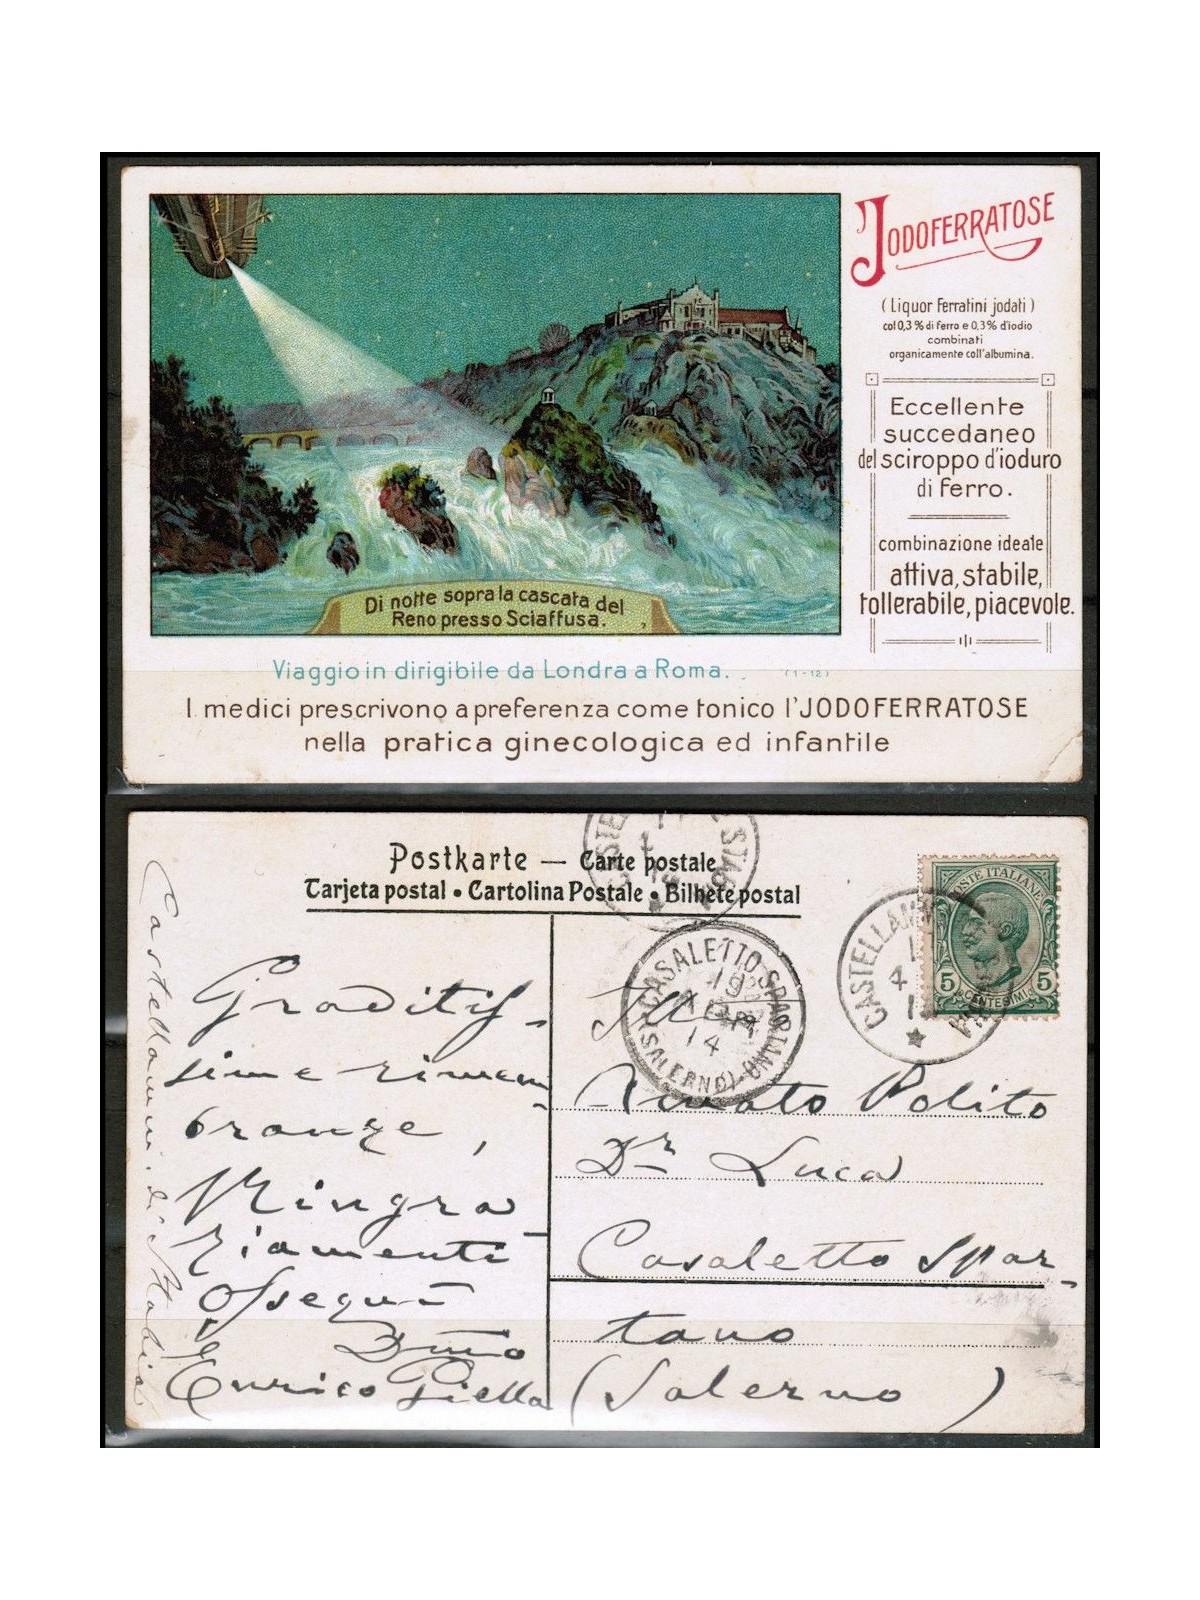 JODOFERRATOSE
( Liquor Ferratini jodati )
col 0,3 % di ferro e 0,3 % d'iodio
combinati
organicamente coll'albumina.
Eccellente
succedaneo
del sciroppo d'ioduro
di ferro.
combinazione ideale
attiva, stabile,
tollerabile, piacevole.
Di notte sopra la cascata del
Reno presso Sciaffusa.
Viaggio in dirigibile da Londra a Roma. (1-12)
I medici prescrivono a preferenza come tonico l'JODOFERRATOSE
nella pratica ginecologica ed infantile
Postkarte — Carte postale
Tarjeta postal • Cartolina Postale • Bilhete postal
POSTE ITALIANE
5 5
CENTESIMI
CASALETTO SPARTANO
(SALERNO)
19
14
Castellamm. di Stabia
Graditis-
sime rimem-
branze,
Ringra-
ziamenti
Ossequi
Dmo
Enrico Piella
Renato Polito
Dr Luca
Casaletto Spar-
tano
(Salerno)